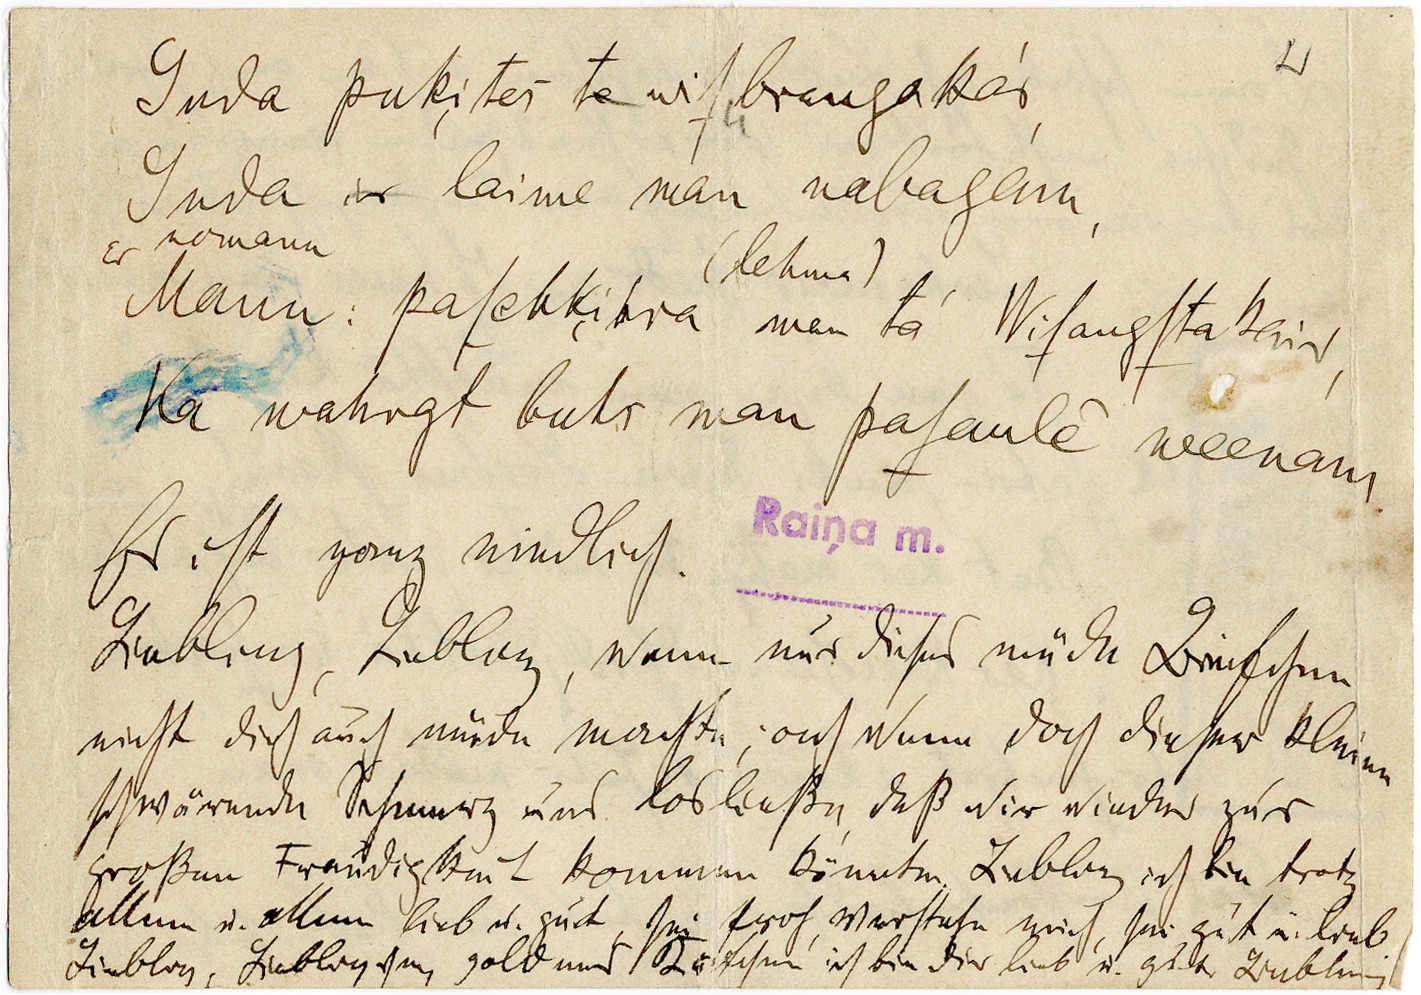 4
Suda pukites te wiſbrangakás,
4
Suda ir laime man nabagam,
er nomann
(lehma)
Mann: paſchkihra man tá Wiſaugſtakais,
Ka wahrgt buhs man paſaulê weenam.
Es ist ganz niedlich.
Raiņa m.
Liebling, Lieblg, wenn nur dieses müde Briefchen
nicht dich auch müde machte, ach wenn doch dieser kleine
schwärende Schmerz uns losließe, daß wir wieder zur
großen Freudigkeit kommen könnten. Lieblg ich bin trotz
allem u. allem lieb u. gut, sei froh, verstehe mich, sei gut u. lieb
Lieblg, Lieblgchen, goldenes ich bin dir lieb u. gut Liebling